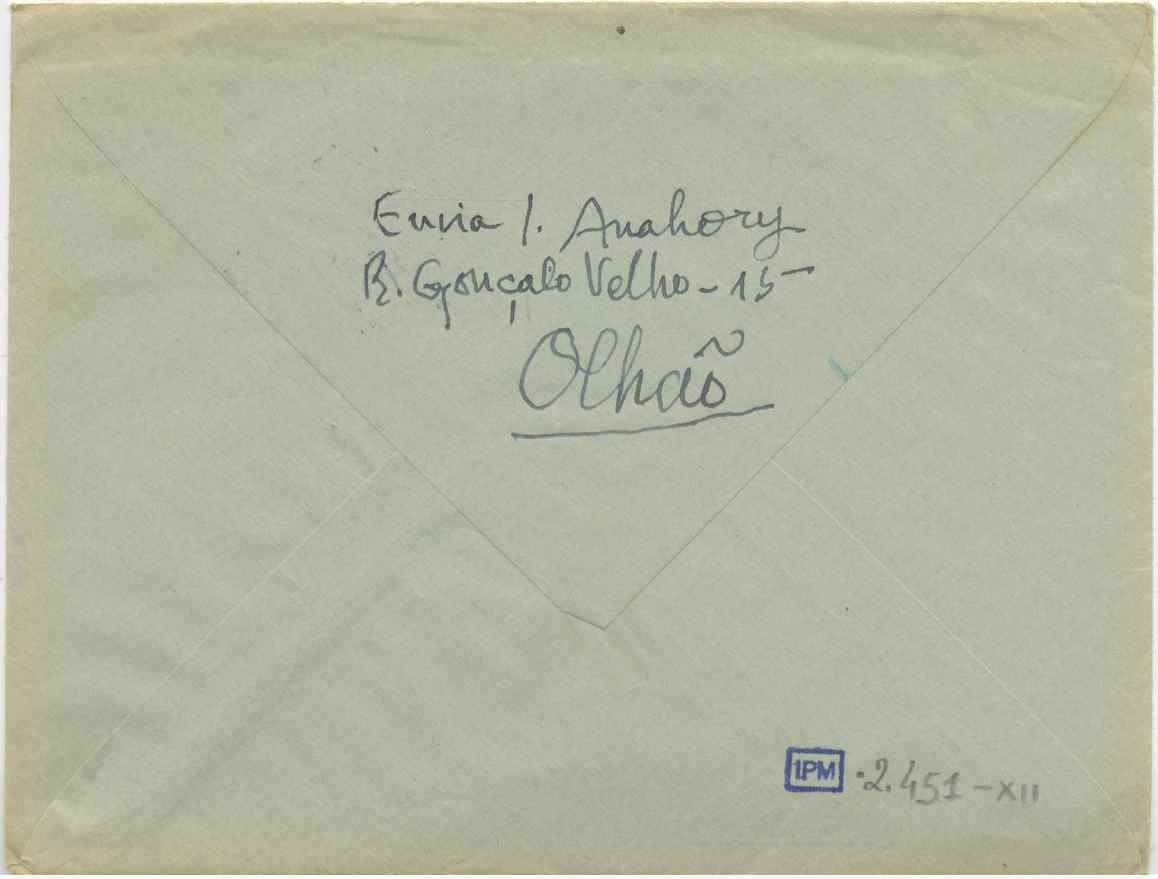 Envia I. Anahory
R. Gonçalo Velho - 15 -
Olhão
IPM . 2.451 - XII